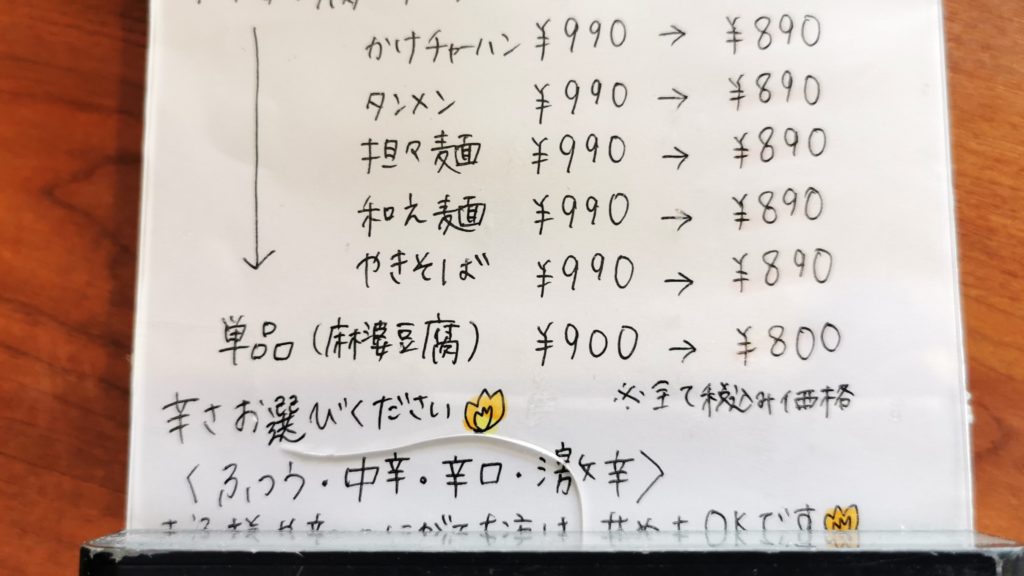 かけチャーハン ¥990 → ¥890
タンメン ¥990 → ¥890
担々麺 ¥990 → ¥890
和え麺 ¥990 → ¥890
やきそば ¥990 → ¥890
単品(麻婆豆腐) ¥900 → ¥800
※全て税込み価格
辛さお選びください
〈ふつう・中辛・辛口・激辛〉
OKです